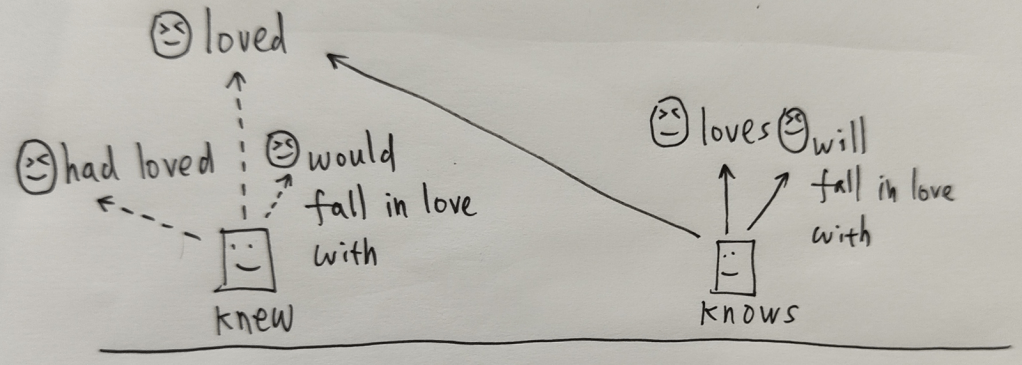 loved
had loved
would
fall in love
with
knew
loves
will
fall in love
with
knows